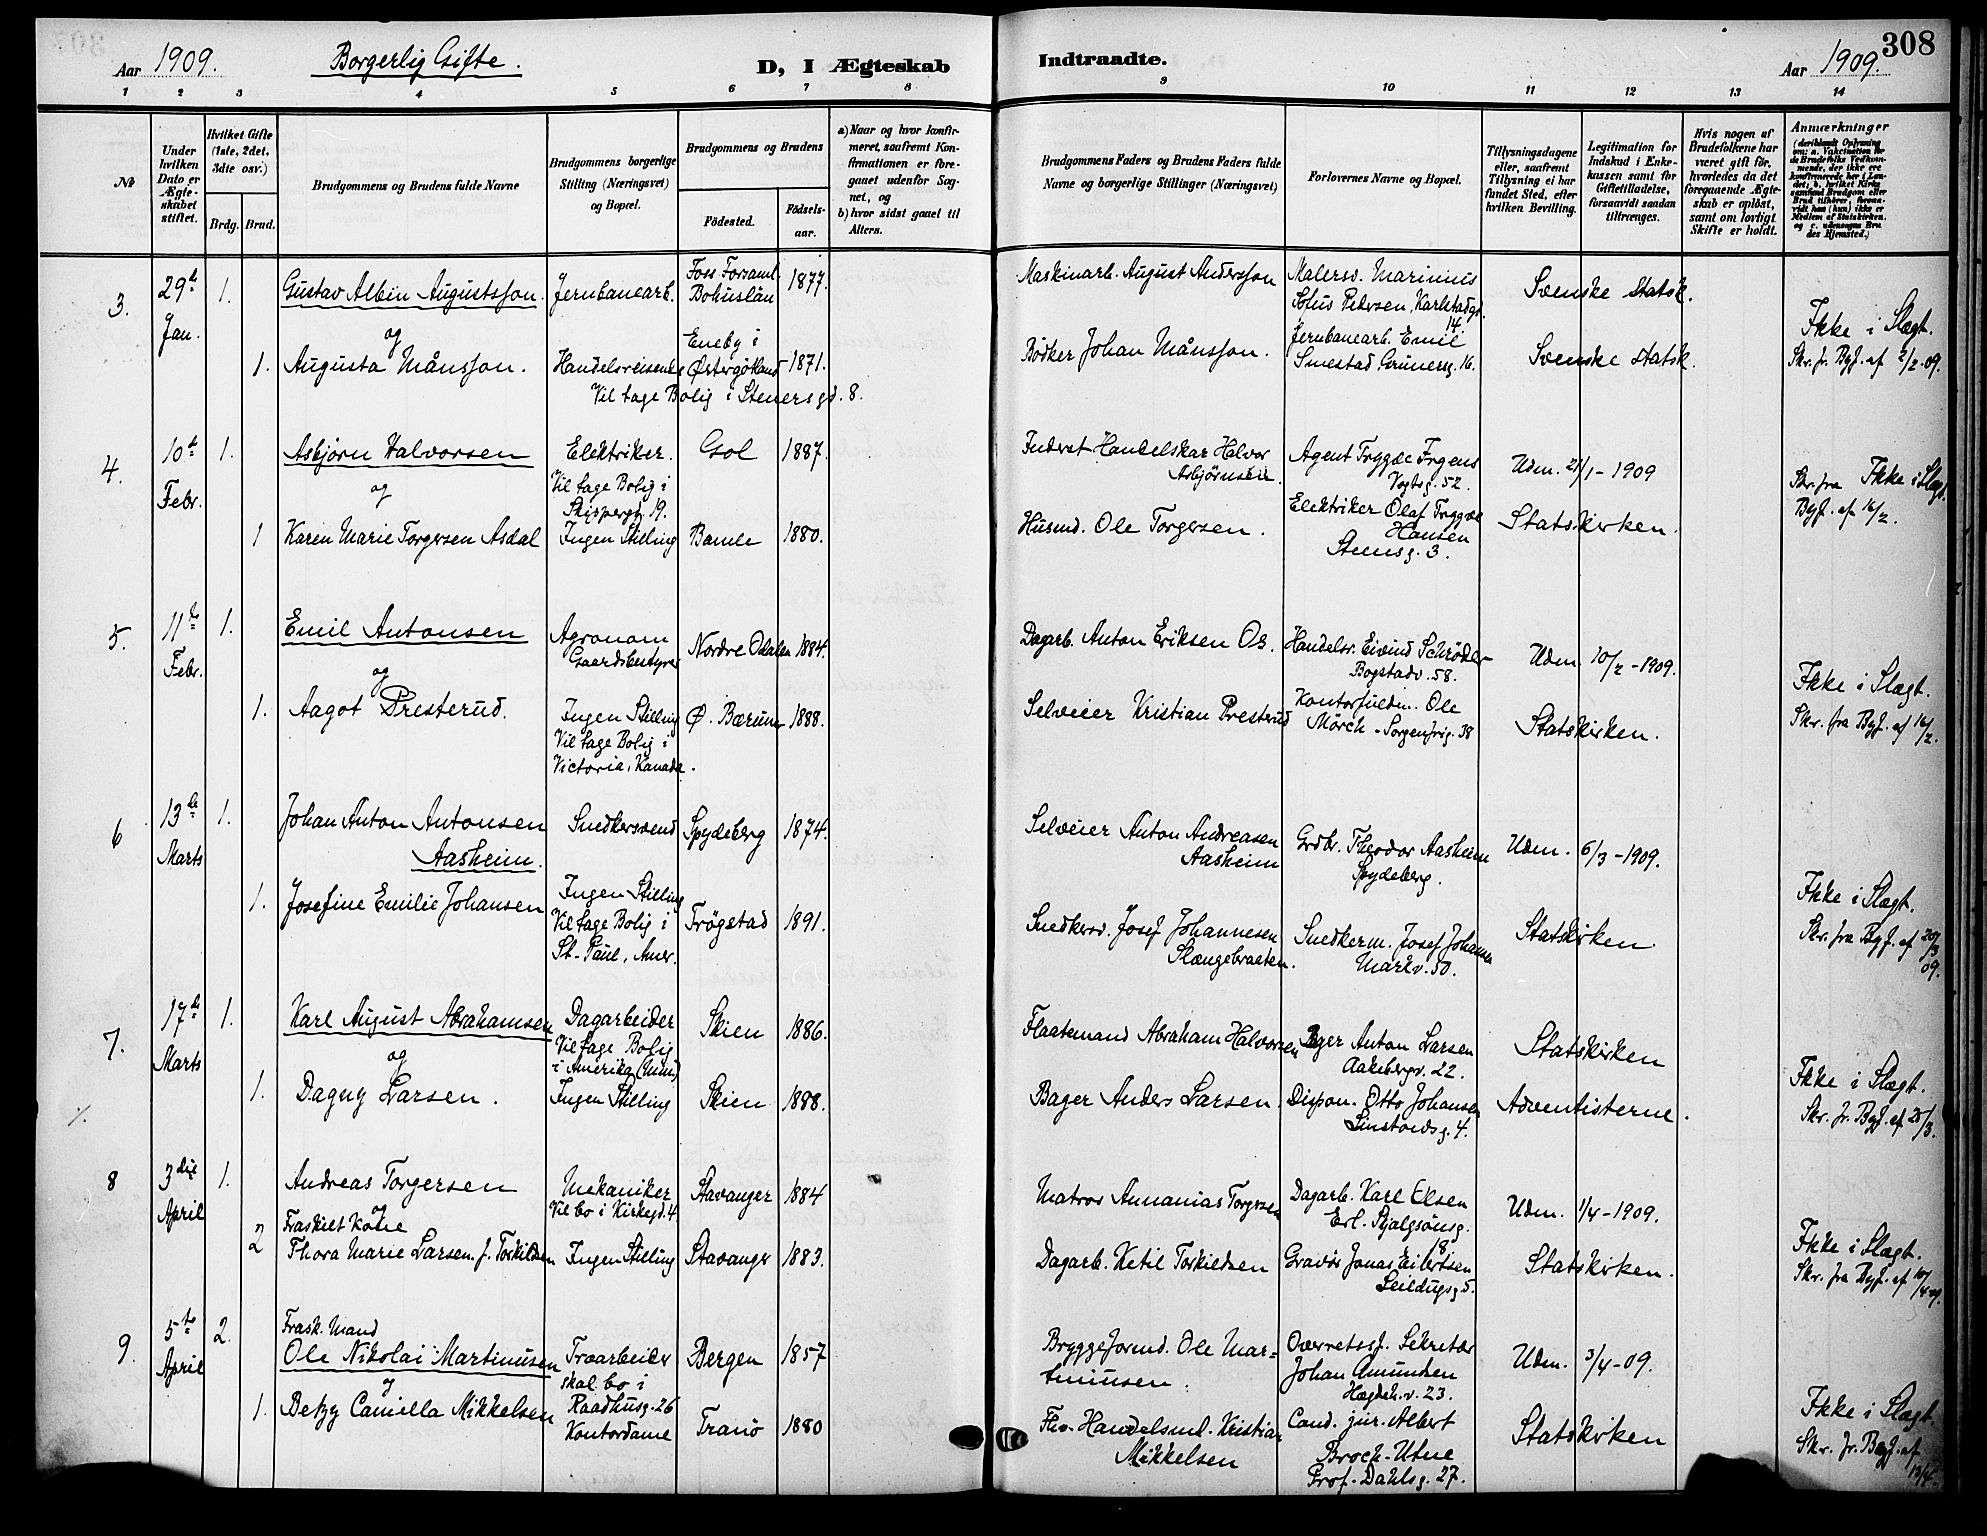 308
Aar 1909.
Borgerlig Gifte.
D, I Ægteskab
Indtraadte.
Aar 1909.
1 2 3 4 5 6 7 8 9 10 11 12 13 14
№
Under hvilken Dato er Ægteskabet stiftet.
Hvilket Gifte (1ste, 2det, 3dte osv.)
Brdg. Brud.
Brudgommens og Brudens fulde Navne
Brudgommens borgerlige Stilling (Næringsvei) og Bopæl.
Brudgommens og Brudens
Födested.
Födselsaar.
a) Naar og hvor konfirmeret, saafremt Konfirmationen er foregaaet udenfor Sognet, og
b) hvor sidst gaaet til Alters.
Brudgommens Faders og Brudens Faders fulde Navne og borgerlige Stillinger (Næringsvei)
Forlovernes Navne og Bopæl.
Tillysningsdagene eller, saafremt Tillysning ei har fundet Sted, efter hvilken Bevilling.
Legitimation for Indskud i Enkekassen samt for Giftetilladelse, forsaavidt saadan tiltrænges.
Hvis nogen af Brudefolkene har været gift før, hvorledes da det foregaaende Ægteskab er oplöst, samt om lovligt Skifte er holdt.
Anmærkninger
(deriblandt Oplysning om: a. Vakcination for de Brudefolks Vedkommende, der ikke ere konfirmerede her i Landet; b. hvilket Kirkesamfund Brudgom eller Brud tilhører, forsaavidt han (hun) ikke er Medlem af Statskirken, og c. udensogns Brudes Hjemsted.)
3. 29de Jan. 1. Gustav Albin Augustsson. Jernbanearb. Foss Forsaml. Bohuslän 1877.
Maskinarb. August Andersson Malersv. Marinius Sofus Pedersen, Karlstadgd. 14. Svenske Statsk.
og
1. Augusta Månsson. Handelsreisende Eneby i Østergötland 1871.
Vil tage Bolig i Stenersgd. 8.
Bödker Johan Månsson. Jernbanearb. Emil Smestad Grünersg. 16. Svenske Statsk.
Ikke i Slægt.
Skr. fr. Byf. af 2/2.09.
4. 10de Febr. 1. Asbjørn Halvorsen Elektriker. Gol 1887.
Vil tage Bolig i Skippergt. 19.
Inderst Handelskar Halvor Asbjørnsen. Agent Tryggve Irgens Vogtsg. 52. Udm. 21/1-1909
og
1 Karen Marie Torgersen Asdal Ingen Stilling Bamle 1880.
Husmd. Ole Torgersen. Elektriker Olaf Tryggve Hansen Steensg. 3. Statskirken.
Ikke i Slægt.
Skr. fra Byf. af 16/2.
5. 11te Febr. 1. Emil Antonsen Agronom Gaardsbestyrer Nordre Odalen 1884.
Dagarb. Anton Eriksen Os. Handelsr. Eivind Schrøder Bogstadv. 58. Udm 10/2-1909.
og
1. Aagot Presterud. Ingen Stilling Ø. Bærum 1888.
Vil tage Bolig i Victoria, Kanada.
Selveier Kristian Presterud Kontorfuldm. Ole Mörch - Sorgenfrig. 38 Statskirken.
Ikke i Slægt.
Skr. fra Byf. af 16/2.
6 13de Marts 1. Johan Anton Antonsen Aasheim. Snedkersvend Spydeberg 1874.
Selveier Anton Andreasen Aasheim Grdbr. Theodor Aasheim Spydeberg. Udm. 6/3-1909.
1. Josefine Emilie Johansen Ingen Stilling Trøgstad 1891.
Vil tage Bolig i St. Paul, Amer.
Snedkersv. Josef Johannesen Slængebraaten. Snedkerm. Josef Johansen Markv. 50. Statskirken.
Ikke i Slægt.
Skr. fra Byf. af 20/3 09.
7. 17de Marts 1. Karl August Abrahamsen Dagarbeider Skien 1886.
Vil tage Bolig i Amerika (Minn)
Flaatemand Abraham Halvorsen Bager Anton Larsen Aakebergv. 22. Statskirken
og
1. Dagny Larsen. Ingen Stilling Skien 1888.
Bager Anders Larsen. Dispon. Otto Johansen Sinstordsg. 4. Adventisterne.
Ikke i Slægt.
Skr. fr. Byf. af 25/3.
8 3die April 1. Andreas Torgersen Mekaniker Stavanger 1884
Vil bo i Kirkegd. 4.
Matros Annanias Torgersen Dagarb. Karl Olsen Erl. Skjalgsönsg. 18 Udm. 1/4-1909.
og
2 Fraskilt Kone Thora Marie Larsen. f. Torkildsen Ingen Stilling Stavanger 1883.
Dagarb. Ketil Torkildsen Gravör Jonas Eilertsen Seildugsg. 5. Statskirken.
Ikke i Slægt.
Skr. fra Byf. af 10/4 09.
9. 5te April 2. Frask. Mand Ole Nikolai Martinusen Træarbeider Bergen 1857
skal bo i Raadhusg. 26
Bryggeformd. Ole Martinusen. Overretssf. Sekretær Johan Amundsen Hægdeh.v. 23. Udm. 3/4-09.
og
1. Betzy Camilla Mikkelsen Kontordame Tranö 1880
Fhv. Handelsmd. Kristian Mikkelsen Cand. jur. Albert Broch-Utne Prof. Dahlsg. 27. Statskirken
Ikke i Slægt.
Skr. fr. Byf. af 13/4.